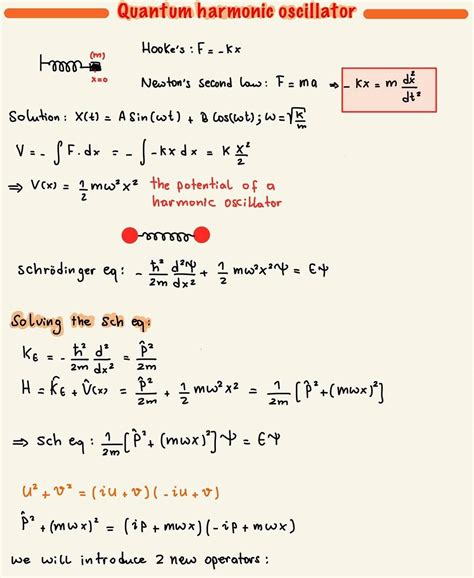 Quantum harmonic oscillator
(m)
x=0
Hooke's : F = -Kx
Newton's second law: F = ma ⇒ - Kx = m dx²/dt²
Solution : X(t) = A Sin(ωt) + B Cos(ωt) ; ω = √(K/m)
V = - ∫ F. dx = - ∫ -Kx dx = K x²/2
⇒ V(x) = 1/2 mω²x² the potential of a
harmonic oscillator
Schrödinger eq : - ℏ²/2m d²Ψ/dx² + 1/2 mω²x²Ψ = EΨ
Solving the Sch eq:
K_E = - ℏ²/2m d²/dx² = p̂²/2m
H = K̂_E + V̂(x) = p̂²/2m + 1/2 mω²x² = 1/2m [p̂² + (mωx)²]
⇒ Sch eq : 1/2m [p̂² + (mωx)²] Ψ = EΨ
u² + v² = (iu + v)(-iu + v)
p̂² + (mωx)² = (ip + mωx)(-ip + mωx)
we will introduce 2 new operators :